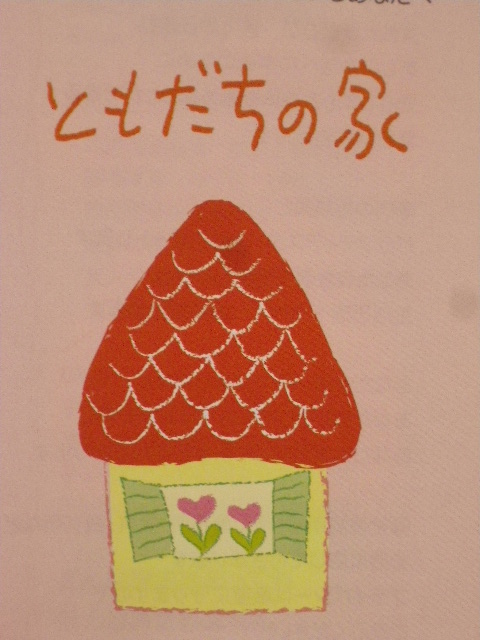 ともだちの家